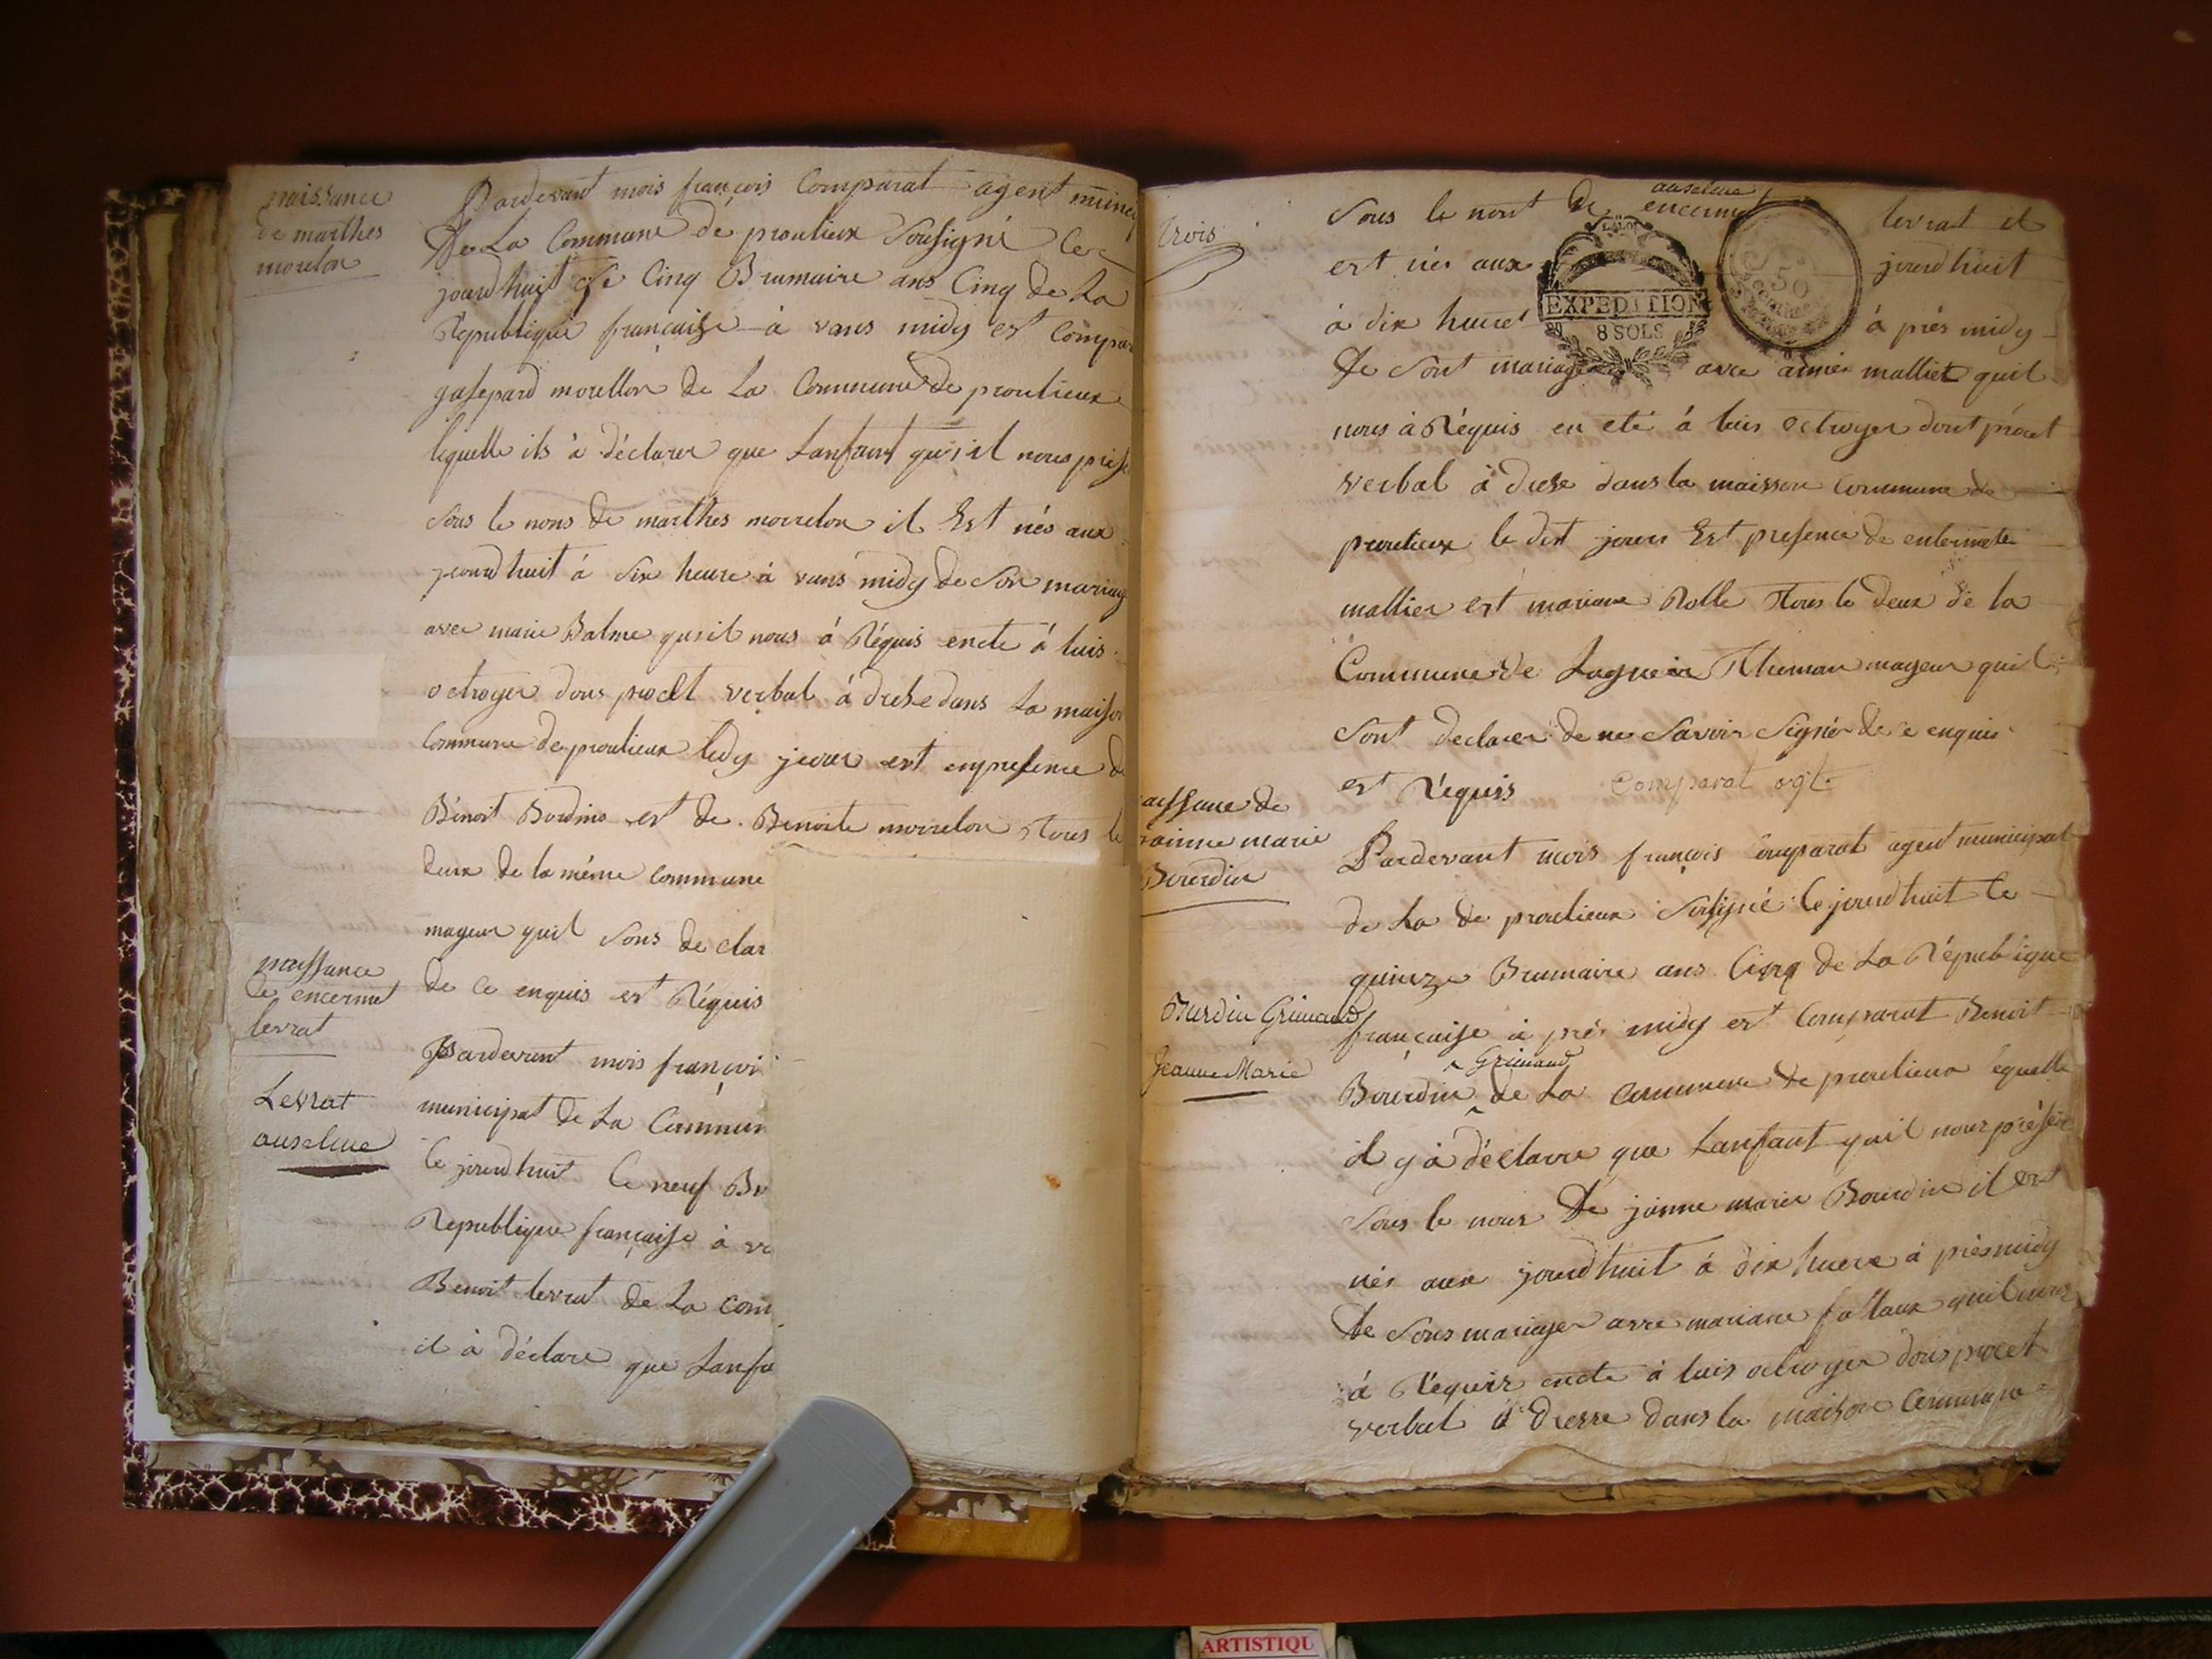 naissance
de marthes
morelon
Pardevant mois françois Comparat agent munici
De La Commune de proulieux Sousigné Ce
jourdhuit Ce Cinq Brumaire ans Cinq de La
Republique française à vans midy est Compar
gasepard morellon de La Commune de proulieux
lequelle ils à déclarer que Lanfant qu'il nous prese
Sous le nons de marthes morrelon il Est nés aux
jourdhuit à Six heure à vans midy de Son mariag
avec marie Balme qu'il nous à Réquis encte à luis
octroyer dons procet verbal à drese dans La maison
Commune de proulieux ledy jour est enpresence d
Bénoit Bourdins est de Benoite morrelon Tous le
deux de la méme Commune
mageur quil Sons de clar
de Ce enquis est Réquis
naissance
de encermet
levrat
Levrat
anselme
Pardevant mois françoi
municipal de La Commun
Ce jourdhuit Ce neuf Br
Republique française à v
Benoit levrat de La Com
il à déclare que Lanfa
trois
anselme
Sous le nont de encermet levrat il
est nés aux jourdhuit
à dix heure à prés midy
De Sont mariage avec aimée malliet quil
nous à Réquis en cté à luis octroyer dont procet
verbal à drese dans la maisson Commune de
proulieux le dit jours Est presence de
mallier est mariane Rolle Tous le deux de la
Commune de Lagneir mageur quil
Sont declarer de ne Savoir Signér de Ce enquis
est Réquis Comparat agt
EXPEDITION
8 SOLS
50
naissance de
jainne marie
Bourdin
Pardevant mois françois Comparat agent municipal
de La de proulieux Sousigné Ce jourdhuit Ce
quinze Brumaire ans Cinq de La République
française à prés midy est Comparut Benoit
Burdin Grimaud
Jeanne Marie
Grimaud
Bourdin de La Commune de proulieux lequelle
il y à déclarre que Lanfant quil nous présen
Sous le nons De janne marie Bourdin il est
nés aux jourdhuit à dix heure à prés midy
De Sons mariage avec mariane fallaux quil nous
à Réquis encte à luis octroyer dons procet
verbal à Dresse dans la maison Commune
ARTISTIQU